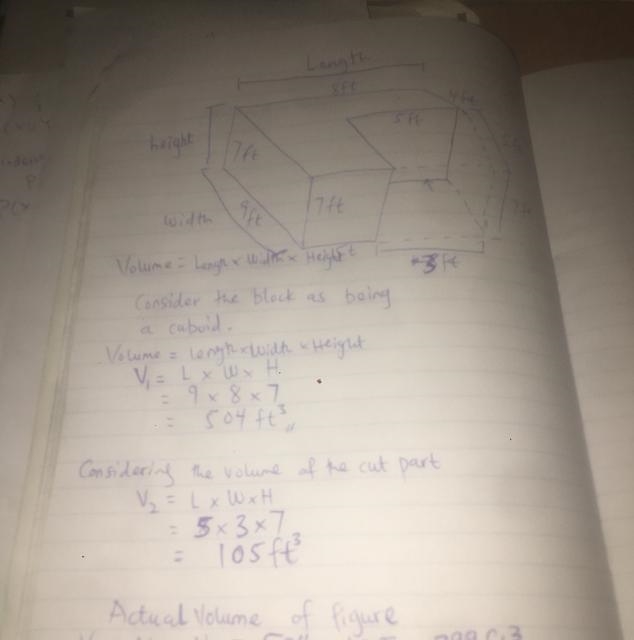 Length
8ft
4ft
5ft
height
7ft
9ft
7ft
width
3ft
Volume = Length x Width x Height
Consider the block as being
a cuboid.
Volume = Length x Width x Height
V₁ = L x W x H
= 9 x 8 x 7
= 504 ft³
Considering the volume of the cut part
V₂ = L x W x H
= 5 x 3 x 7
= 105 ft³
Actual Volume of figure